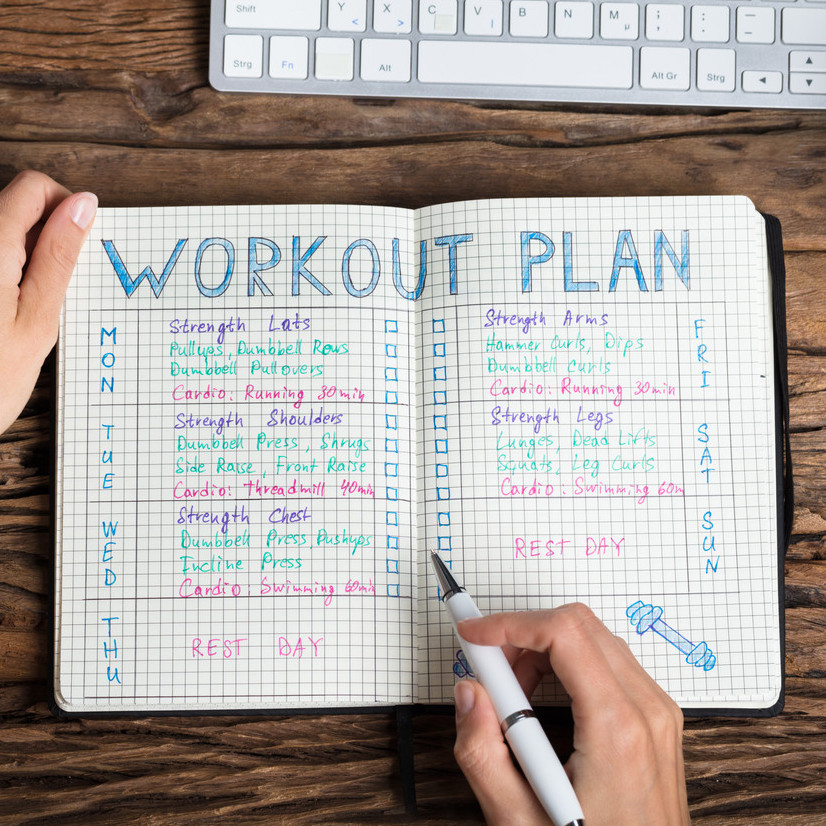 Shift Y X C V B N M µ ; , : . – _
< > |
Strg Fn Alt Alt Gr Strg
WORKOUT PLAN
MON
Strength Lats
Pullups, Dumbbell Rows
Dumbbell Pullovers
Cardio: Running 30min
TUE
Strength Shoulders
Dumbbell Press, Shrugs
Side Raise, Front Raise
Cardio: Threadmill 40min
WED
Strength Chest
Dumbbell Press, Pushups
Incline Press
Cardio: Swimming 60min
THU
REST DAY
FRI
Strength Arms
Hammer Curls, Dips
Dumbbell Curls
Cardio: Running 30min
SAT
Strength Legs
Lunges, Dead Lifts
Squats, Leg Curls
Cardio: Swimming 60m
SUN
REST DAY